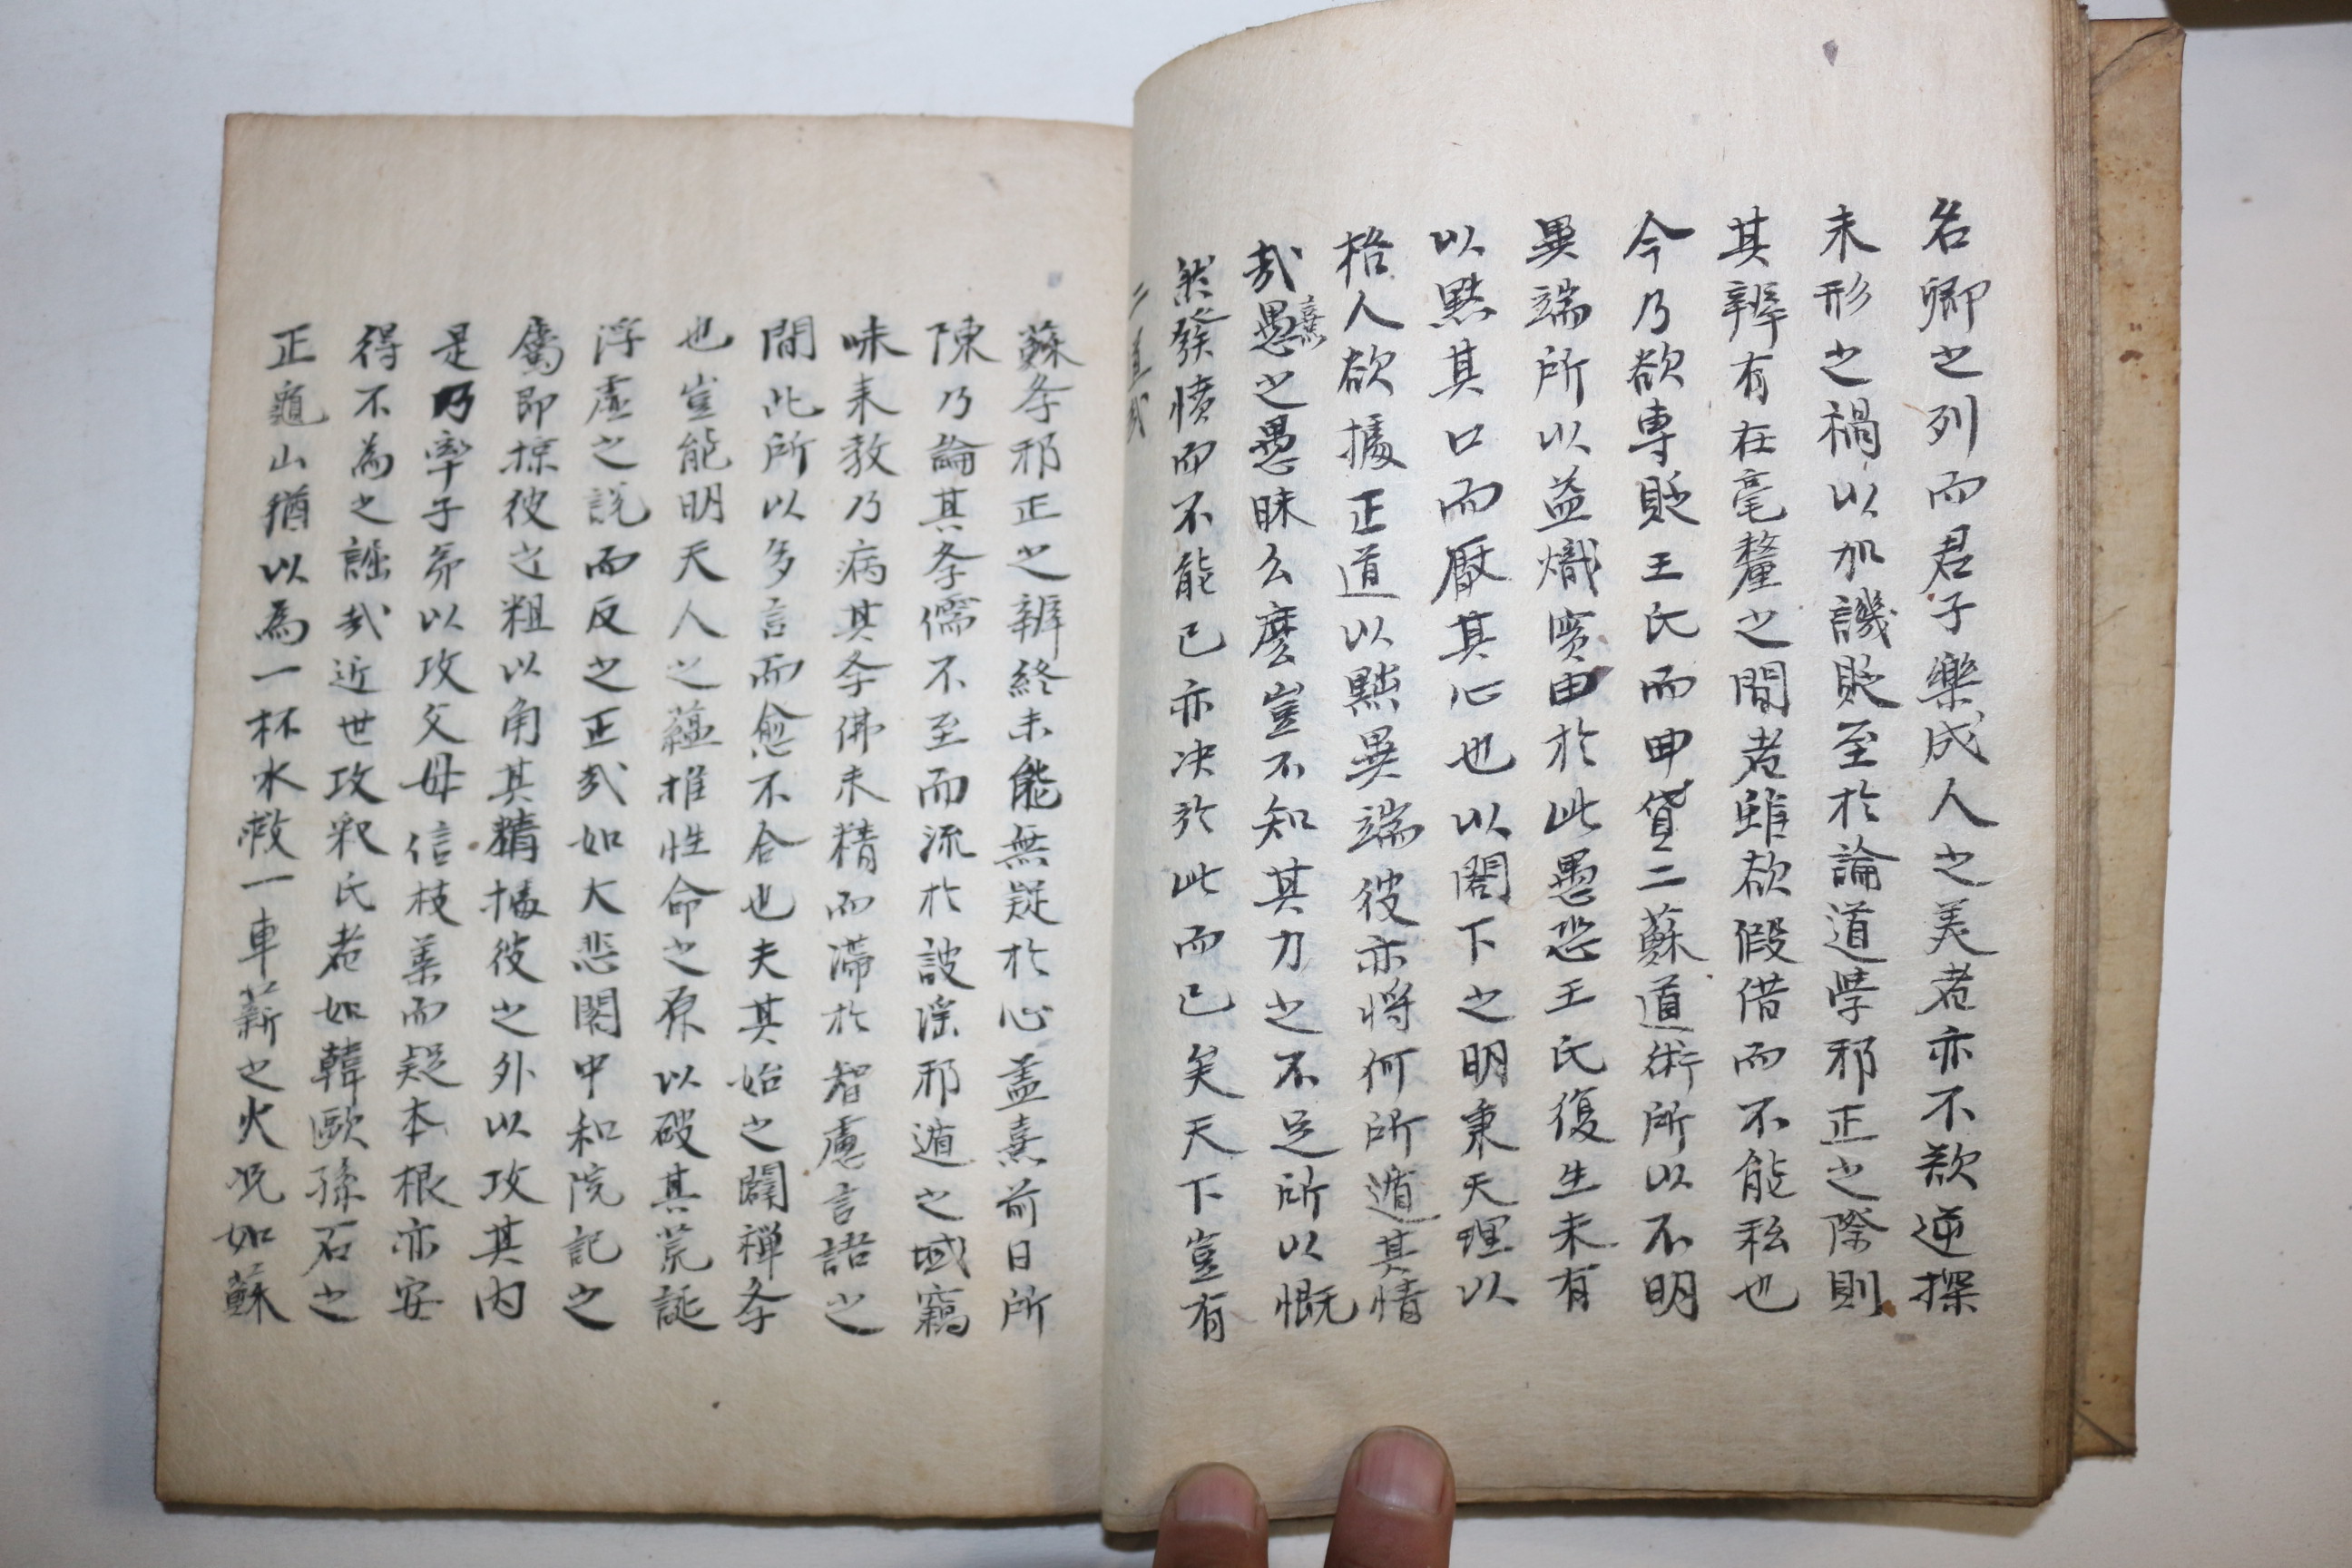 名卿之列而君子樂成人之美者亦不欲逆探
未形之禍以加譏貶至於論道學邪正之際則
其辨有在毫釐之間者雖欲假借而不能私也
今乃欲專貶王氏而申貸二蘇道術所以不明
異端所以益熾實由於此愚恐王氏復生未有
以默其口而厭其心也以閤下之明秉天理以
格人欲據正道以黜異端彼亦將何所遁其情
哉愚熹之愚昧么麼豈不知其力之不足所以慨
然發憤而不能已亦决於此而已矣天下豈有
二道哉
蘇斈邪正之辨終未能無疑於心盖熹前日所
陳乃論其斈儒不至而流於詖淫邪遁之域竊
味来教乃病其斈佛未精而滯於智慮言語之
間此所以多言而愈不合也夫其始之闢禪斈
也豈能明天人之蘊推性命之原以破其荒誕
浮虛之說而反之正哉如大悲閣中和院記之
屬即掠彼之粗以角其精據彼之外以攻其内
是乃率子弟以攻父母信枝葉而疑本根亦安
得不為之詘哉近世攻釈氏者如韓歐孫石之
正龜山猶以為一杯水救一車薪之火况如蘇